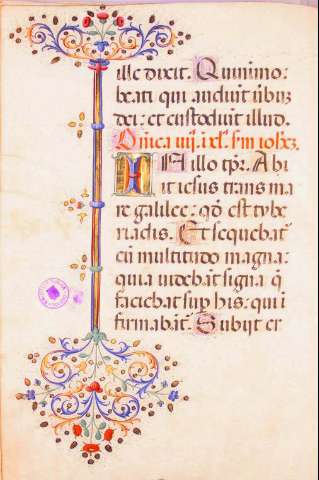 ille dixit. Quinimo:
beati qui audiunt ubuʒ
dei: et custodiunt illud.
Dnica iiij. i xl. sm iohez.
IN illo tpr. Abi
it iesus trans ma
re galilee: qd est tybe
riadis. Et sequebat
eu multitudo magna:
quia uidebat signa q
faciebat sup his: qui i
firmabat. Subijt er